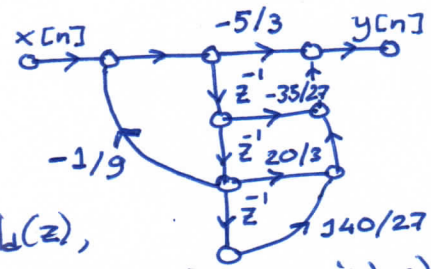 -5/3
x[n] y[n]
z⁻¹ -35/27
-1/9 z⁻¹ 20/3
z⁻¹ 140/27
d(z),